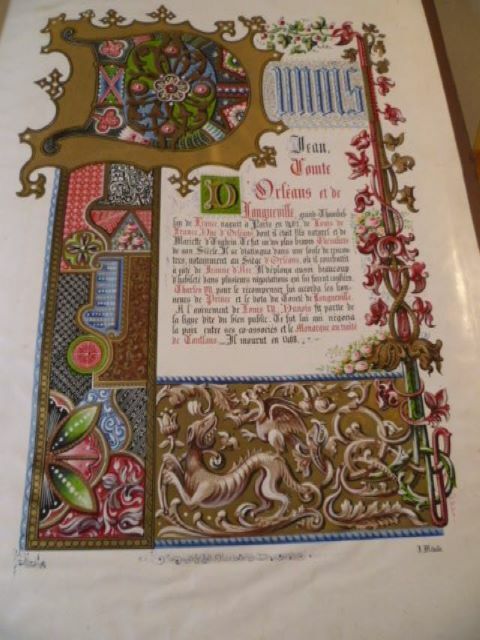 Dunois
Jean,
Comte
D'Orléans et de
Longueville, grand-Chambel-
lan de France, naquit à Paris en 1402, de Louis de
France, Duc d'Orléans, dont il était fils naturel et de
Mariette d'Enghein. Ce fut un des plus braves Chevaliers
de son Siècle. Il se distingua dans une foule de rencon-
tres, notamment au Siége d'Orléans, où il combattit
à côté de Jeanne d'Arc. Il déploya aussi beaucoup
d'habileté dans plusieurs négociations qui lui furent confiées.
Charles VII, pour le récompenser, lui accorda les hon-
neurs de Prince et le dota du Comté de Longueville.
A l'avénement de Louis XI, Dunois fit partie de
la ligue dite du bien public. Ce fut lui qui négocia
la paix entre ses co-associés et le Monarque au traité
de Conflans. Il mourut en 1468.